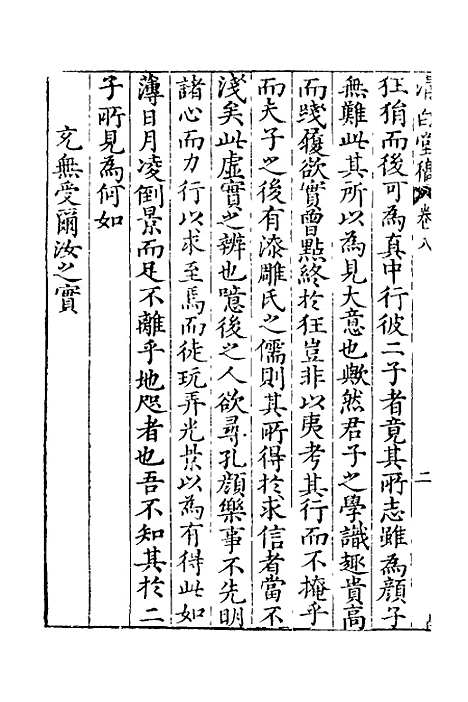 清白堂稿 卷八 二
狂狷而後可為真中行彼二子者竟其所志雖為顏子
無難此其所以為見大意也歟然君子之學識趣貴高
而踐履欲實曾點終於狂豈非以夷考其行而不掩乎
而夫子之後有漆雕氏之儒則其所得於求信者當不
淺矣此虛實之辨也噫後之人欲尋孔顏樂事不先明
諸心而力行以求至焉而徒玩弄光景以為有得此如
薄日月凌倒景而足不離乎地咫者也吾不知其於二
子所見為何如
充無受爾汝之實